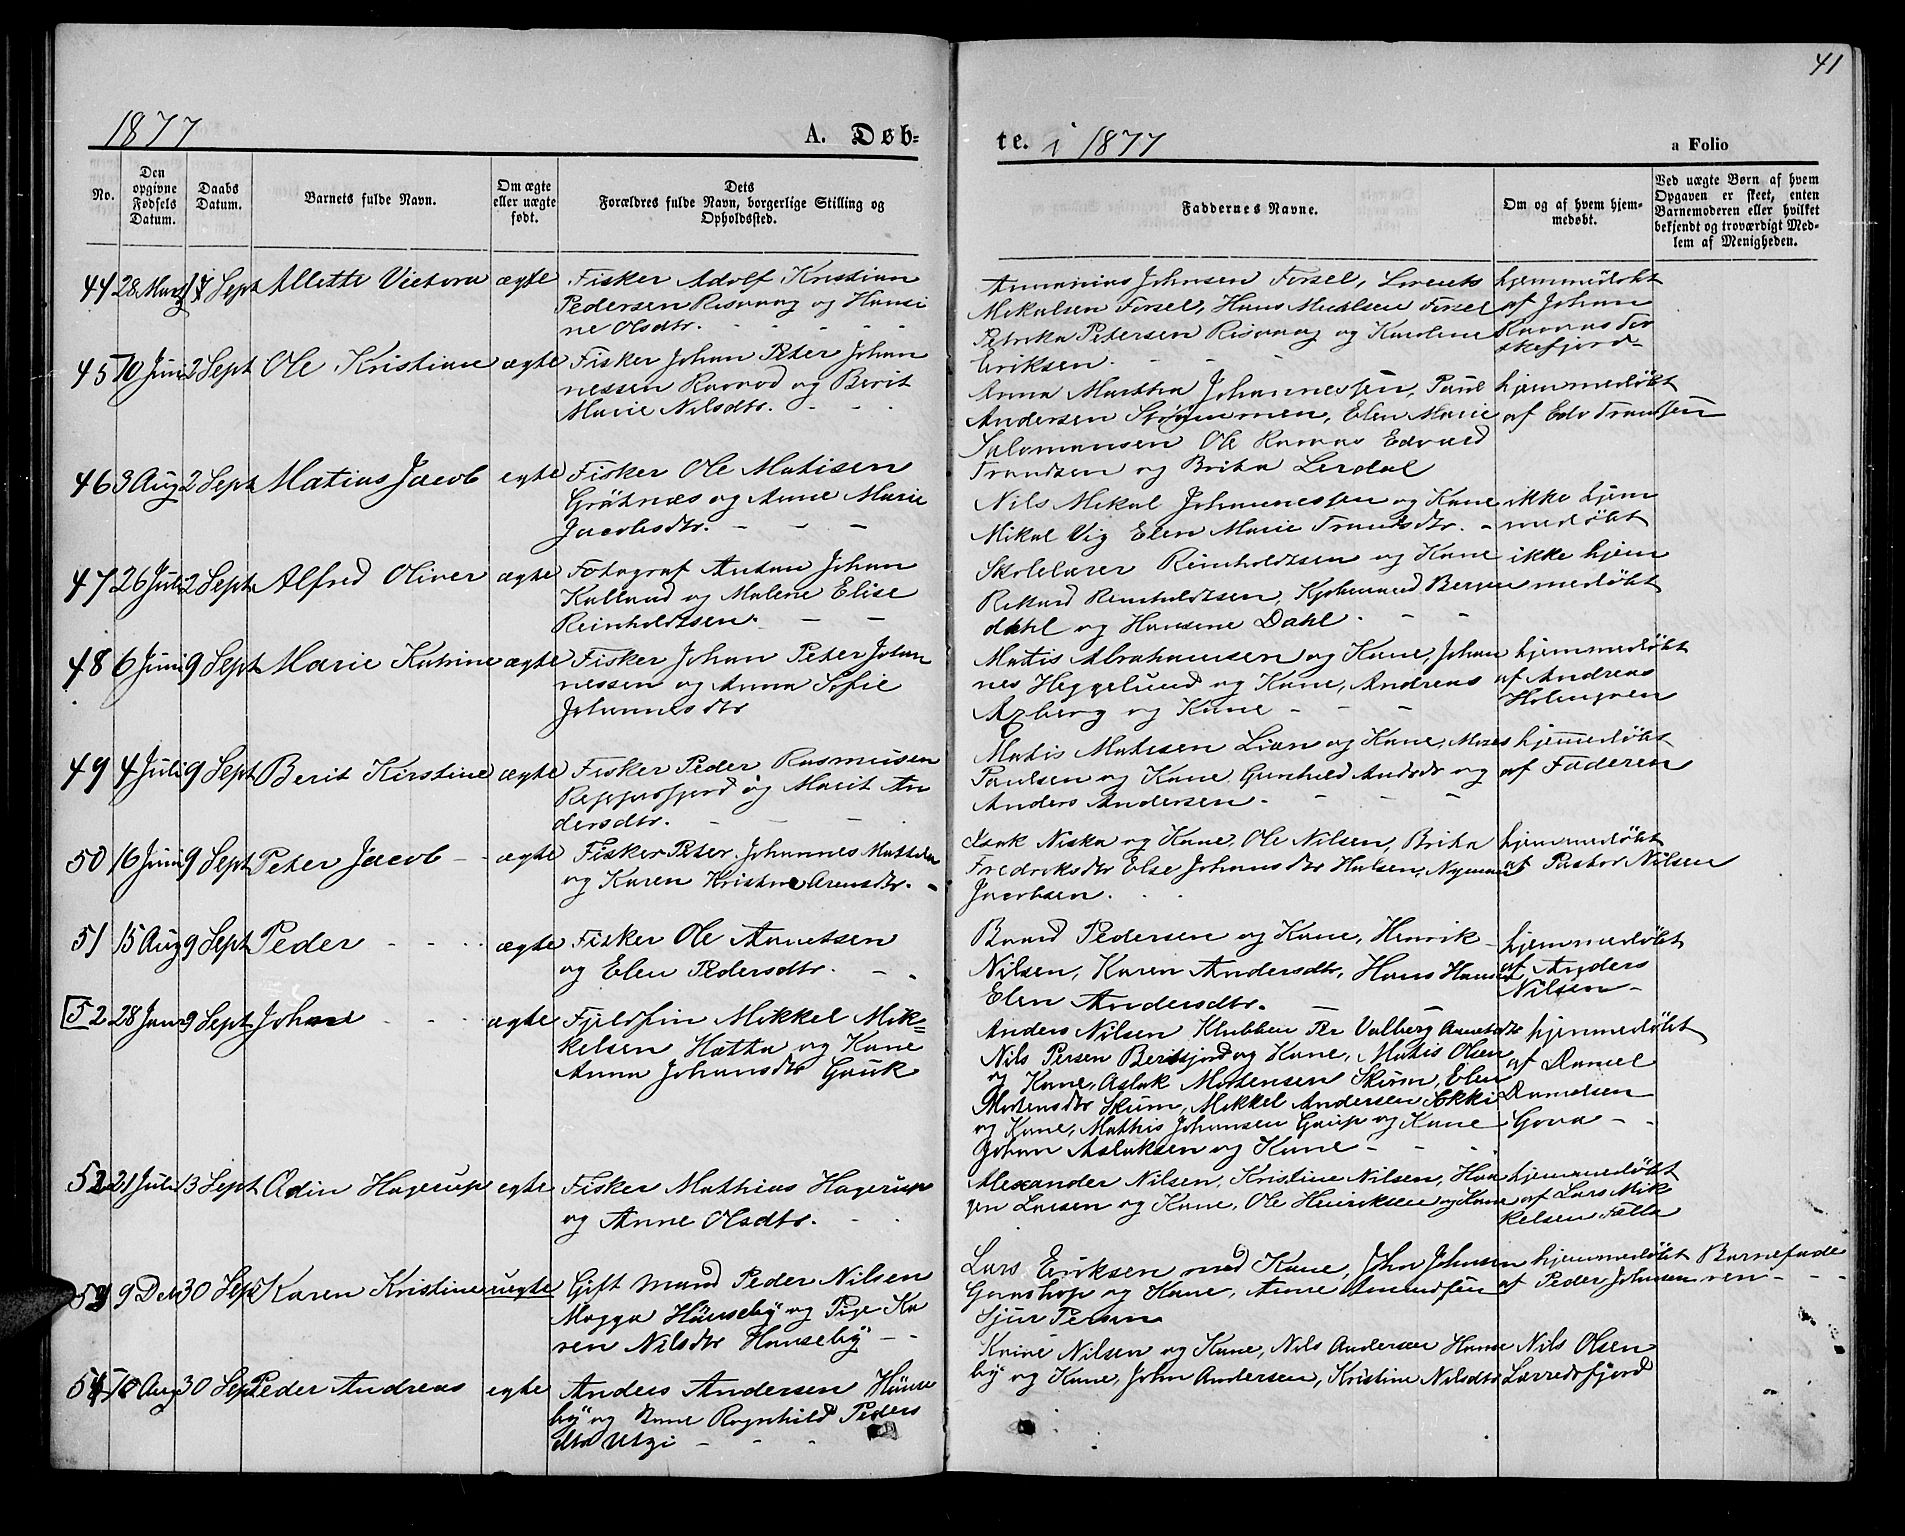 41
1877
A. Døb-
te. i 1877
a Folio
No.
Den opgivne Fødsels Datum.
Daabs Datum.
Barnets fulde Navn.
Om ægte eller uægte født.
Dets Forældres fulde Navn, borgerlige Stilling og Opholdssted.
Faddernes Navne.
Om og af hvem hjemmedøbt.
Ved uægte Børn af hvem Opgaven er skeet, enten Barnemoderen eller hvilket bekjendt og troværdigt Medlem af Menigheden.
44 28 Marts Sept Allette Victora ægte Fisker Adolf Kristian
Pedersen Risvaag og Hansi
ne Olsdtr.
Johnsen Forsel, Lorents
Mikalsen Forsel, Hans Forsel
Petrika Petersen Risvaag og Karoline
Eriksen.
hjemmedøbt
af Johan
skefjord
45 10 Juni 2 Sept Ole Kristian ægte Fisker Johan Peter Johan
nessen og Berit
Marie Nilsdtr.
Anna Martha Johannessen, Paul
Andersen Strømmen, Elen Marie
Salomonsen Ole Edvard
Trondsen og Brita Lerdal
hjemmedøbt
af Edv Trondsen
46 3 Aug 2 Sept Matias Jacob egte Fisker Ole Matisen
Grøtnæs og Anne Marie
Jacobsdtr.
Nils Mikal Johannessen og Kane
Mikal Vig Elen Marie Trondsdtr.
ikke hjem
medøbt
47 26 Juli 2 Sept Alfred Oliver ægte Fotograf Anton Johan
Kalland og Malene Elise
Reinholdtsen.
Skolelærer Reinholdtsen og Kane
Rikard Reinholdtsen, Kjøbmand Bergen
dahl og Hansine Dahl.
ikke hjem
medøbt
48 6 Juni 9 Sept Marie Katrine ægte Fisker Johan Peter Johan
nessen og Anna Sofie
Johannesdtr
Matis Abrahamsen og Kane, Johan
nes Heggelund og Kane, Andreas
Azberg og Kane
hjemmedøbt
af Andreas
Holmgren
49 4 Juli 9 Sept Berit Kirstine ægte Fisker Peder Rasmusen
Repparfjord og Marit An
dersdtr.
Matis Matisen Lian og Kane, Moses
Paulsen og Kane Gunhild Andsdtr og
Anders Andersen.
hjemmedøbt
af Faderen
50 16 Juni 9 Sept Peter Jacob ægte Fisker Peter Johannes Mattila
og Karen Kristine Arensdtr.
Isak Niska og Kane, Ole Nilsen, Brita
Fredriksdtr Else Johansdtr Halsen, Nyman
Jacobsen.
hjemmedøbt
af Pastor Nilsen
51 15 Aug 9 Sept Peder ægte Fisker Ole Amutsen
og Elen Pedersdtr.
Baard Pedersen og Kane, Henrik
Nilsen, Karen Andersdtr, Hans Hansen
Elen Andersdtr.
hjemmedøbt
af Anders
Nilsen
52 28 Jan 9 Sept Johan ægte Fjeldfin Mikkel Mik=
kelsen Hætta og Kane
Anna Johansdtr Gauk
Anders Nilsen Klubben Per Valberg
Nils Persen og Kane, Matis Olsen
og Kane, Aslak Mortensen Skum, Elen
Mortensdtr Skum, Mikkel Andersen
og Kane, Mathis Johansen Gaup og Kane
Johan Aslaksen og Kane
hjemmedøbt
af Daniel
Danielsen
Gova
52 21 Juli 13 Sept Odin Hagerup egte Fisker Mathias Hagerup
og Anne Olsdtr.
Alexander Nilsen, Kristine Nilsen, Haa
gen Larsen og Kane, Ole Henriksen og Kane
hjemmedøbt
af Lars Mik
kelsen Fælla
53 9 Dec 30 Sept Karen Kristine uegte Gift Mand Peder Nilsen
Magga Hønseby og Pige Ka
ren Nilsdtr Hønseby
Lars Eriksen med Kane, John Johnsen
og Kane, Anne Amundsen
Sjur Persen
hjemmedøbt
af Peder Johnsen
Barnefade
ren
54 18 Aug 30 Sept Peder Andreas egte Anders Andersen Hønse
by og Kane Ragnhild Peders
dtr Utzi
Nilsen og Kane, Nils Andersen Hønse
by og Kane, John Andersen, Kristine Nilsdtr
Nils Olsen
Lærredsfjord